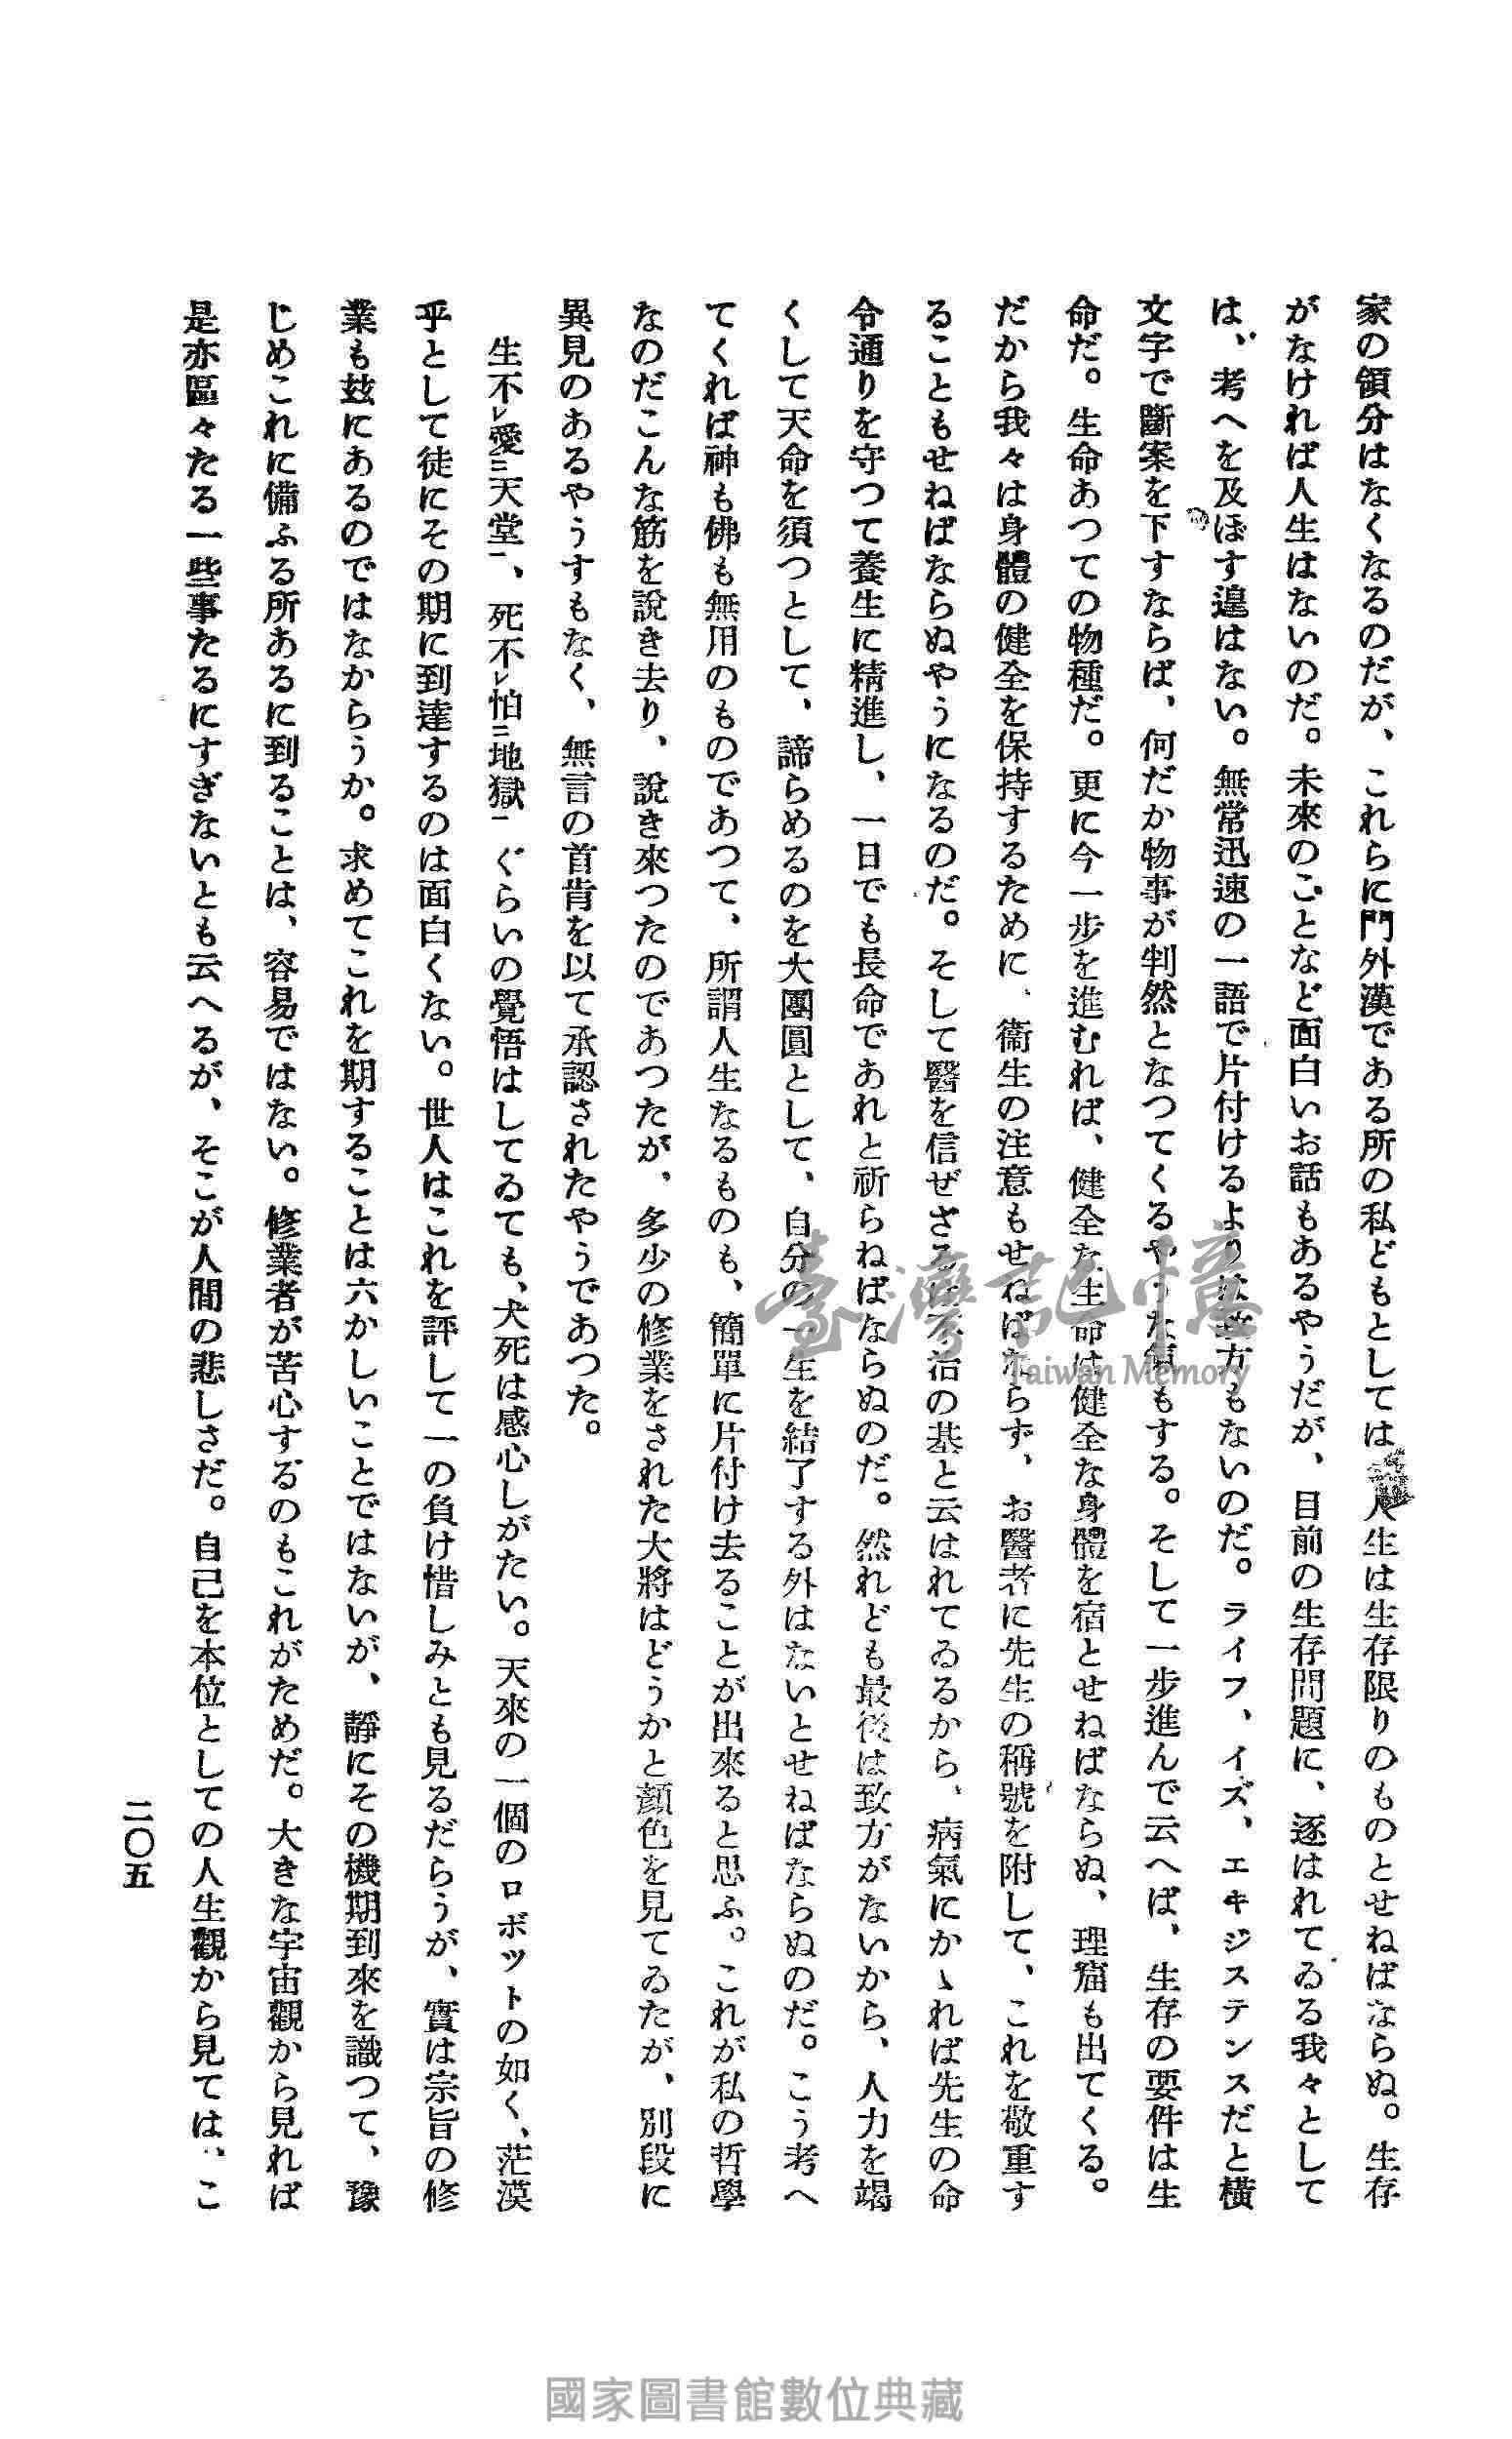 家の領分はなくなるのだが、これらに門外漢である所の私どもとしては人生は生存限りのものとせねばならぬ。生存
がなければ人生はないのだ。未來のことなど面白いお話もあるやうだが、目前の生存問題に、逐はれてゐる我々として
は、考へを及ぼす遑はない。無常迅速の一語で片付けるよりは致方もないのだ。ライフ、イズ、エキジステンスだと横
文字で斷案を下すならば、何だか物事が判然となつてくるやうな氣もする。そして一步進んで云へば、生存の要件は生
命だ。生命あつての物種だ。更に今一步を進むれば、健全な生命は健全な身體を宿とせねばならぬ、理窟も出てくる。
だから我々は身體の健全を保持するために、衞生の注意もせねばならず、お醫者に先生の稱號を附して、これを敬重す
ることもせねばならぬやうになるのだ。そして醫を信ぜざるは不治の基と云はれてゐるから、病氣にかゝれば先生の命
令通りを守つて養生に精進し、一日でも長命であれと祈らねばならぬのだ。然れども最後は致方がないから、人力を竭
くして天命を須つとして、諦らめるのを大團圓として、自分の一生を結了する外はないとせねばならぬのだ。こう考へ
てくれば神も佛も無用のものであつて、所謂人生なるものも、簡單に片付け去ることが出來ると思ふ。これが私の哲學
なのだこんな筋を說き去り、說き來つたのであつたが、多少の修業をされた大將はどうかと顏色を見てゐたが、別段に
異見のあるやうすもなく、無言の首肯を以て承認されたやうであつた。
生不レ愛二天堂一、死不レ怕二地獄一ぐらいの覺悟はしてゐても、犬死は感心しがたい。天來の一個のロボツトの如く、茫漠
乎として徒にその期に到達するのは面白くない。世人はこれを評して一の負け惜しみとも見るだらうが、實は宗旨の修
業も玆にあるのではなからうか。求めてこれを期することは六かしいことではないが、靜にその機期到來を識つて、豫
じめこれに備ふる所あるに到ることは、容易ではない。修業者が苦心するのもこれがためだ。大きな宇宙觀から見れば
是亦區々たる一些事たるにすぎないとも云へるが、そこが人間の悲しさだ。自己を本位としての人生觀から見ては、こ
二〇五
臺灣記憶
Taiwan Memory
國家圖書館數位典藏